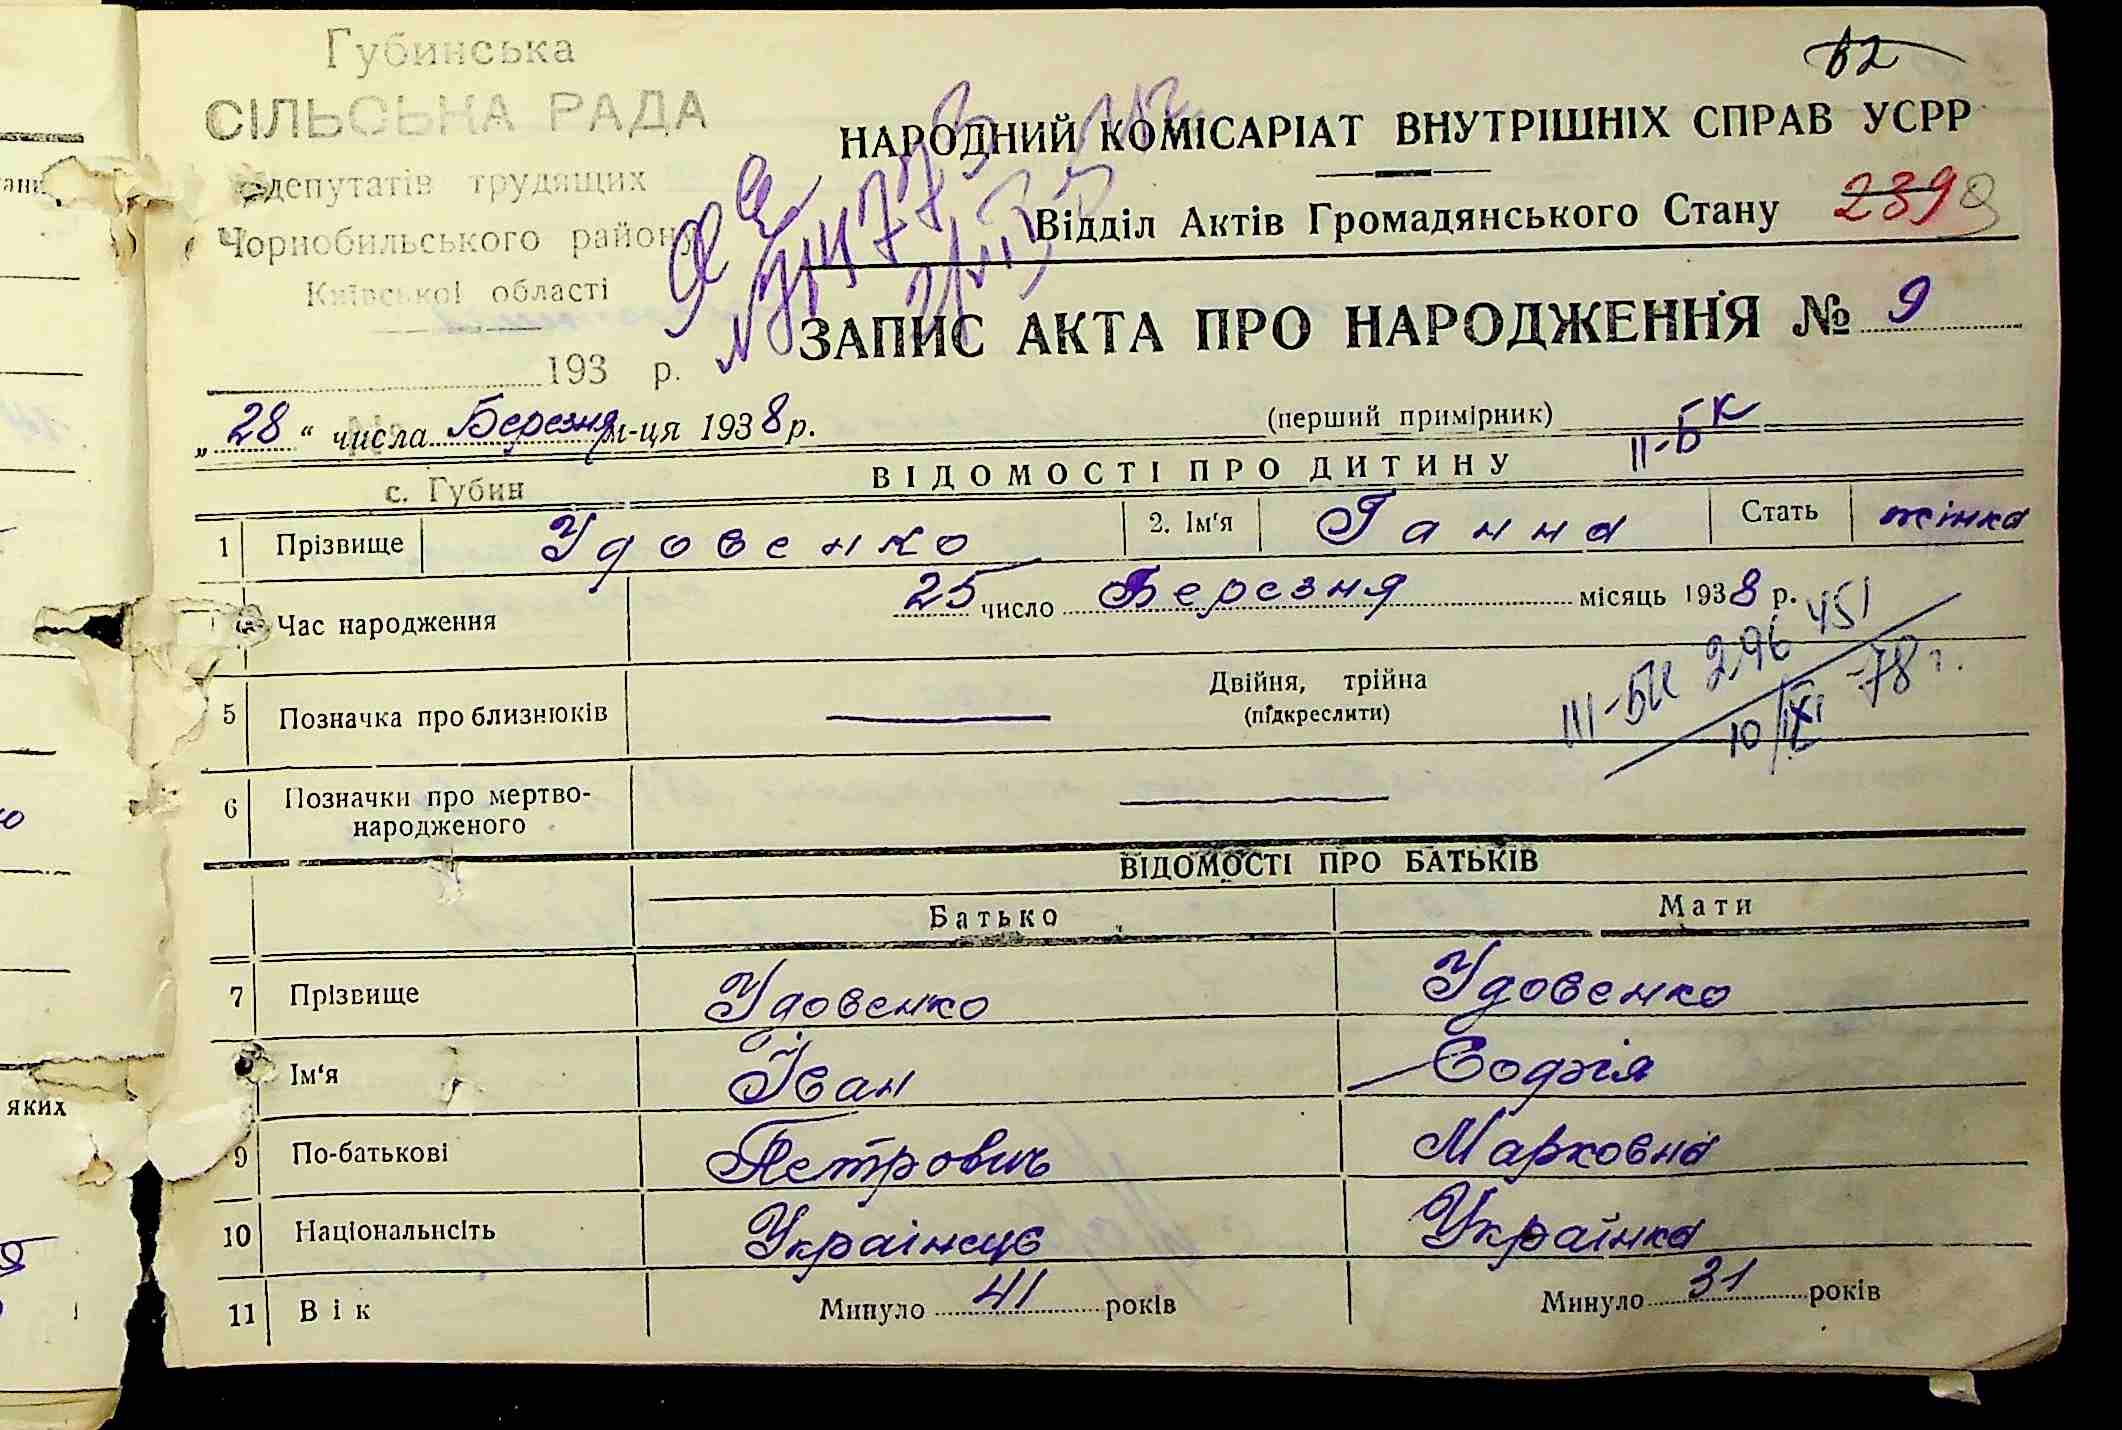 Губинська
СІЛЬСЬКА РАДА
депутатів трудящих
Чорнобильського району
Київської області
193 р.
№
с. Губин
82
НАРОДНИЙ КОМІСАРІАТ ВНУТРІШНІХ СПРАВ УСРР
Відділ Актів Громадянського Стану 239
ЗАПИС АКТА ПРО НАРОДЖЕННЯ № 9
„28“ числа Березня м-ця 1938 р. (перший примірник) II-БК
ВІДОМОСТІ ПРО ДИТИНУ
1 Прізвище Удовенко 2. Ім'я Ганна Стать жінка
Час народження 25 число Березня місяць 1938 р.
III-БК 296451
10/XI-78 г.
5 Позначка про близнюків Двійня, трійна
(підкреслити)
6 Позначки про мертво-
народженого
ВІДОМОСТІ ПРО БАТЬКІВ
Батько Мати
7 Прізвище Удовенко Удовенко
Ім'я Іван Софія
9 По-батькові Петрович Марковна
10 Національнсіть Украінець Українка
11 Вік Минуло 41 років Минуло 31 років
яких